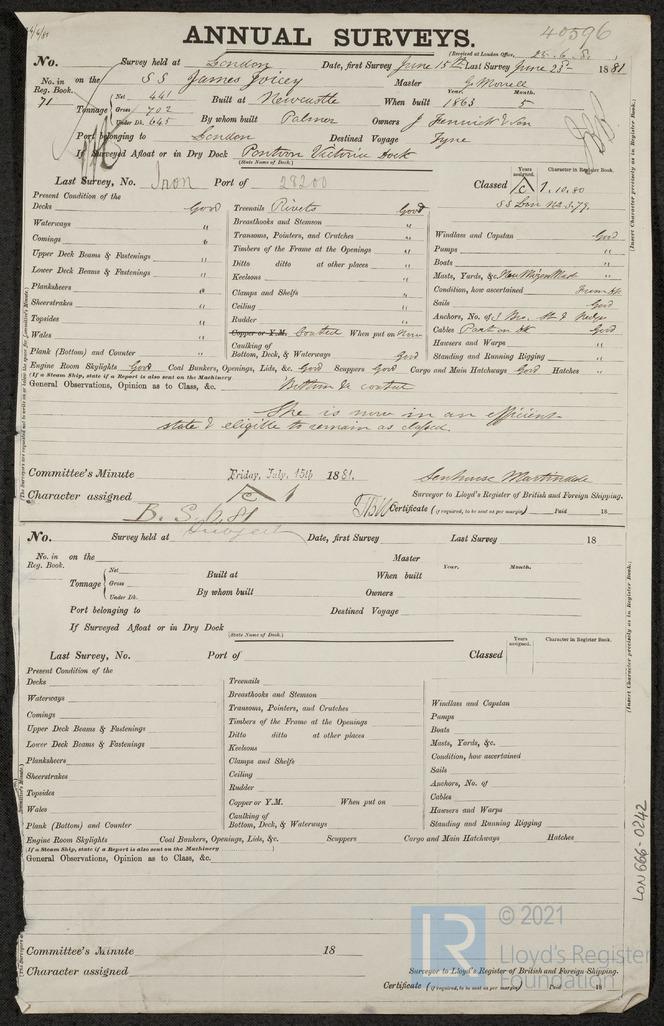 ANNUAL SURVEYS.
40596
(Received at London Office,
No. Survey held at London Date, first Survey June 15th Last Survey June 23rd 1881
No. in Reg. Book. on the SS James Joicey Master G. Morrell
71 Tonnage Net 441 Gross 702 Under Dk. 645 Built at Newcastle When built Year. 1863 Month. 5
By whom built Palmer Owners J Fenwick & Son
Port belonging to London Destined Voyage Tyne
If Surveyed Afloat or in Dry Dock Pontoon Victoria Dock
(State Name of Dock.)
Years assigned. Character in Register Book.
Last Survey, No. Iron Port of 28200 Classed C 1. 10.80
SS Lon No.3.79.
(Insert Character precisely as in Register Book.)
Present Condition of the
Decks Good
Waterways "
Comings "
Upper Deck Beams & Fastenings "
Lower Deck Beams & Fastenings "
Planksheers "
Sheerstrakes "
Topsides "
Wales "
Plank (Bottom) and Counter "
Treenails Rivets Good
Breasthooks and Stemson "
Transoms, Pointers, and Crutches "
Timbers of the Frame at the Openings "
Ditto ditto at other places "
Keelsons "
Clamps and Shelfs "
Ceiling "
Rudder "
Copper or Y.M. Coated When put on Now
Caulking of Bottom, Deck, & Waterways Good
Windlass and Capstan Good
Pumps "
Boats "
Masts, Yards, &c. New Mizen Mast "
Condition, how ascertained From Dk
Sails Good
Anchors, No. of
Cables Part on dk Good
Hawsers and Warps "
Standing and Running Rigging "
Engine Room Skylights Good Coal Bunkers, Openings, Lids, &c. Good Scuppers Good Cargo and Main Hatchways Good Hatches "
(If a Steam Ship, state if a Report is also sent on the Machinery
General Observations, Opinion as to Class, &c. Bottom &c coated
She is now in an efficient
state & eligible to remain as classed.
Committee's Minute Friday, July, 15th 1881. Senhouse Martindale
Character assigned C 1 Surveyor to Lloyd's Register of British and Foreign Shipping.
B. S. 6.81 Certificate (if required, to be sent as per margin) Paid 18
No. Survey held at Date, first Survey Last Survey 18
No. in Reg. Book. on the Master
Tonnage Net Gross Under Dk. Built at When built Year. Month.
By whom built Owners
Port belonging to Destined Voyage
If Surveyed Afloat or in Dry Dock
(State Name of Dock.)
Years assigned. Character in Register Book.
Last Survey, No. Port of Classed
(Insert Character precisely as in Register Book.)
Present Condition of the
Decks
Waterways
Comings
Upper Deck Beams & Fastenings
Lower Deck Beams & Fastenings
Planksheers
Sheerstrakes
Topsides
Wales
Plank (Bottom) and Counter
Treenails
Breasthooks and Stemson
Transoms, Pointers, and Crutches
Timbers of the Frame at the Openings
Ditto ditto at other places
Keelsons
Clamps and Shelfs
Ceiling
Rudder
Copper or Y.M. When put on
Caulking of Bottom, Deck, & Waterways
Windlass and Capstan
Pumps
Boats
Masts, Yards, &c.
Condition, how ascertained
Sails
Anchors, No. of
Cables
Hawsers and Warps
Standing and Running Rigging
Engine Room Skylights Coal Bunkers, Openings, Lids, &c. Scuppers Cargo and Main Hatchways Hatches
(If a Steam Ship, state if a Report is also sent on the Machinery )
General Observations, Opinion as to Class, &c.
LON666-0242
Committee's Minute 18
Character assigned Surveyor to Lloyd's Register of British and Foreign Shipping.
Certificate (if required, to be sent as per margin) Paid 18
LR © 2021
Lloyd's Register
Foundation